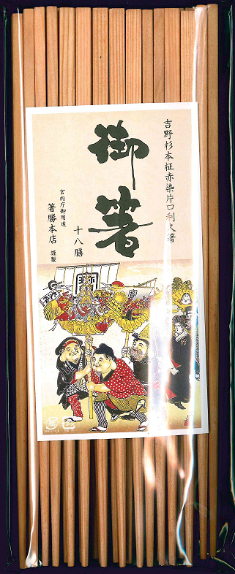 吉野杉本柾赤染片口利久箸
御箸
十八膳
宮内庁御用達
箸勝本店 謹製